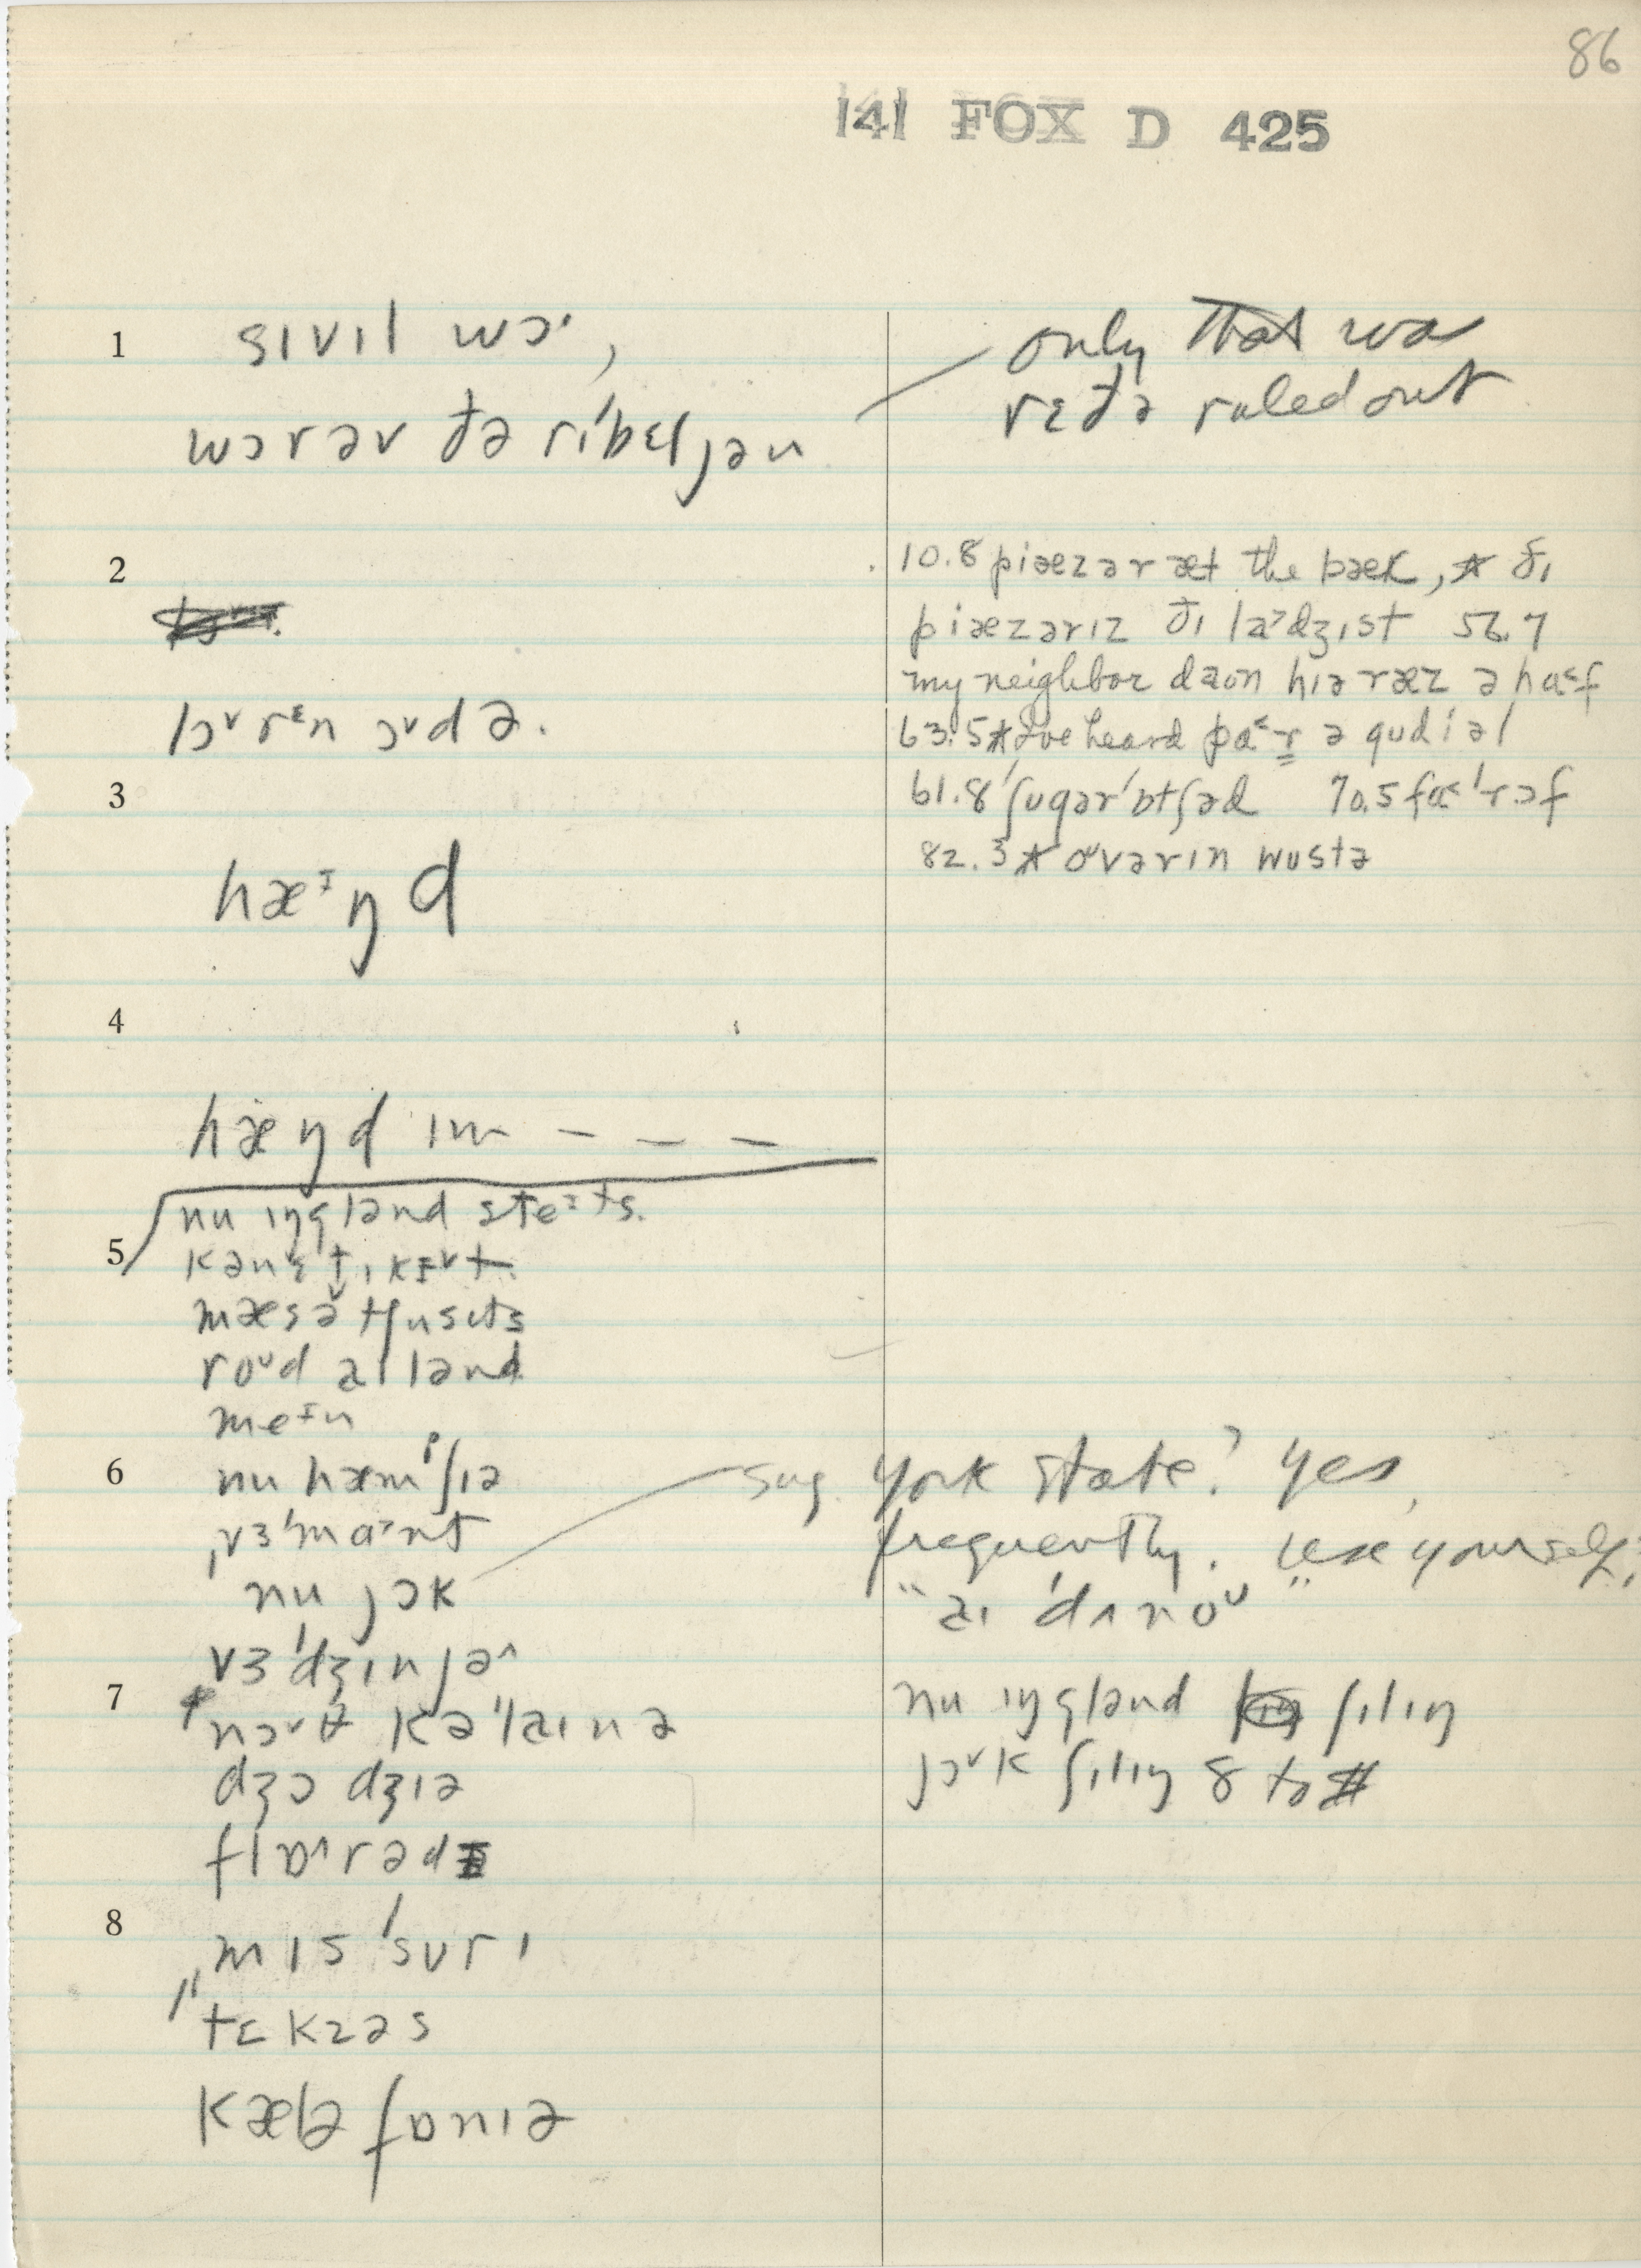 86
141 FOX D 425
1
sɪvɪl wɔ·,
wɔrəv ðə rɪ'bɛljən
only that was
rɛðə ruled out
2
lɔᵛrᵋn ɔᵛdə.
10.8 piæzər æt the bæk, * ðɪ
piæzərɪz ðɪ la˃dʒɪst 56.7
my neighbor daʊn hɪə ræz ə ha˂f
63.5 * I've heard pa˂r ə gudiəl
61.8 'ʃugər'ɒtʃəd 70.5 fa˂'rɔf
82.3 * oᵘvər ɪn wustə
3
hæᶦŋd
4
hæŋd ɪm – – –
5
nu ɪŋglənd steᶦts.
kənɛtɪkɪᵛt
mæsətʃusɪts
roᵘd aɪlənd
meᶦn
6
nu hæmᵖʃɪə
ˌvɜ'ma˃nt
nu jɔk
sug. York State? Yes,
frequently. use yourself,
"aɪ 'dʌnoᵘ"
vɜ'dʒɪnjə^
7
nɔᵛθ kə'laɪnə
dʒɔdʒɪə
flɒ^rədɪ
nu ɪŋglənd ʃɪlɪŋ
jɔᵛk ʃɪlɪŋ 8 to #
8
ˌmɪs'surɪ
"tɛkzəs
kæləfɒnɪə